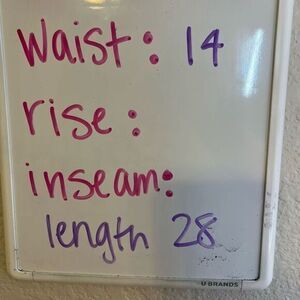 waist: 14
rise:
inseam:
length 28
U BRANDS